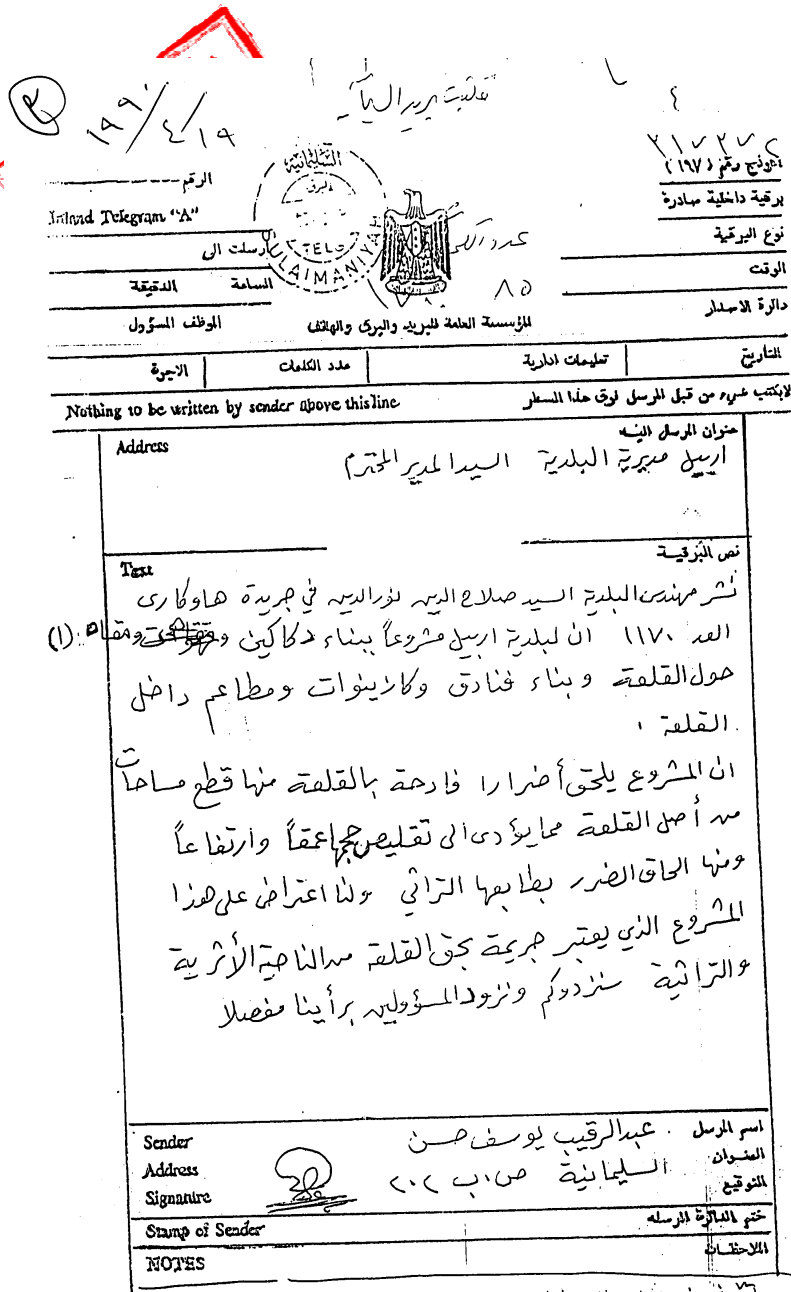 ١٩٩٠/٤/١٩
نموذج رقم (١٩٧)
الرقم
برقية داخلية صادرة
Inland Telegram "A"
نوع البرقية
ارسلت الى
الوقت
الساعة الدقيقة
دائرة الاصدار
٨٥
الموظف المسؤول
السليمانية
SULAIMANIYAH
المؤسسة العامة للبريد والبرق والهاتف
التاريخ تعليمات ادارية عدد الكلمات الاجرة
لايكتب شيء من قبل المرسل فوق هذا السطر
Nothing to be written by sender above this line
عنوان المرسل اليه
Address
اربيل مديرية البلدية السيد المدير المحترم
نص البرقية
Text
نشر مهندس البلدية السيد صلاح الدين نورالدين في جريدة هاوكارى
العدد ١١٧٠ ان لبلدية اربيل مشروعاً ببناء دكاكين ومقاه (١)
حول القلعة وبناء فنادق وكازينوات ومطاعم داخل
القلعة .
ان المشروع يلحق أضرارا فادحة بالقلعة منها قطع مساحات
من أصل القلعة مما يؤدى الى تقليص حجمها عمقاً وارتفاعاً
ومنها الحاق الضرر بطابعها التراثي ولنا اعتراض على هذا
المشروع الذي يعتبر جريمة بحق القلعة من الناحية الأثرية
والتراثية سنزودكم ونزود المسؤولين برأينا مفصلا
اسم المرسل عبدالرقيب يوسف حسن
Sender
العنوان السليمانية ص.ب ٢٠٢
Address
التوقيع
Signature
ختم الدائرة المرسله
Stamp of Sender
الملاحظات
NOTES